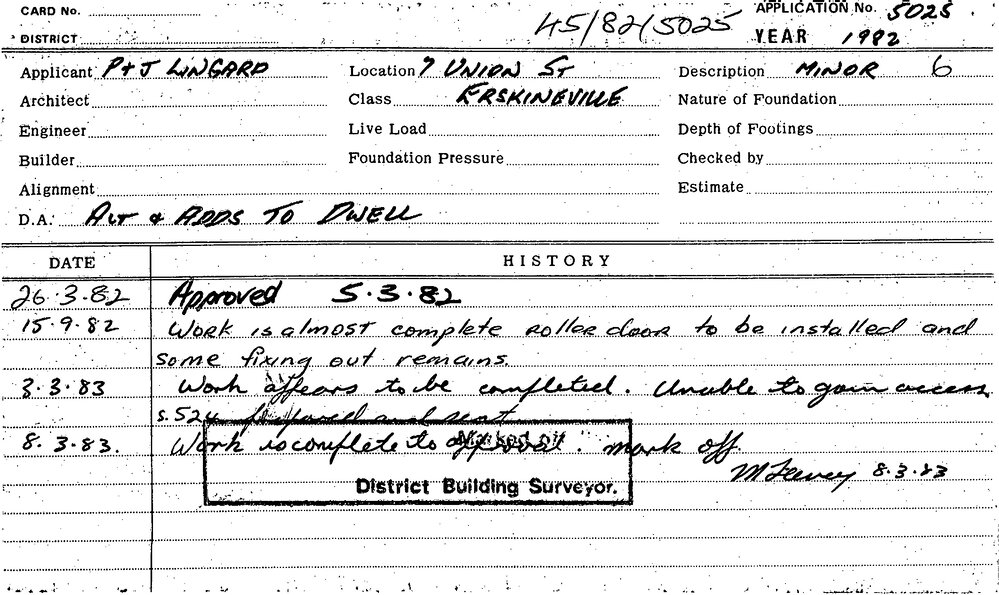 CARD No.
45/82/5025
APPLICATION No. 5025
DISTRICT
YEAR 1982
Applicant P & J LINGARD
Location 7 UNION ST
Description MINOR 6
Architect
Class ERSKINEVILLE
Nature of Foundation
Engineer
Live Load
Depth of Footings
Builder
Foundation Pressure
Checked by
Alignment
Estimate
D.A. ALT & ADDS TO DWELL
DATE
HISTORY
26.3.82 Approved 5.3.82
15.9.82 Work is almost complete roller door to be installed and
some fixing out remains.
3.3.83 Work appears to be completed. Unable to gain access
s.524 prepared and sent
8.3.83. Work is complete to approval. mark off.
Marked off
8.3.83
District Building Surveyor.